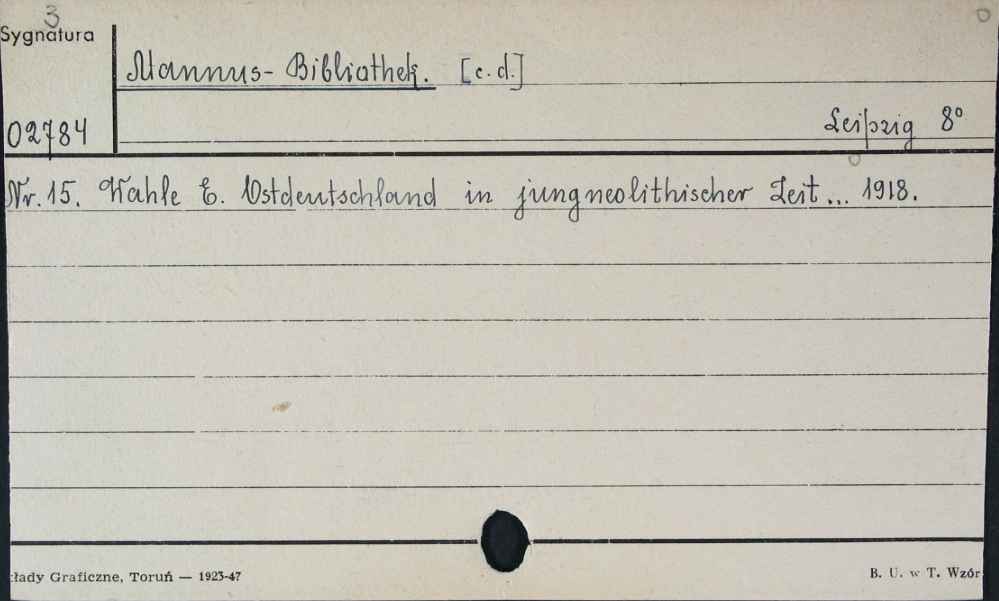 3
Sygnatura
Mannus-Bibliothek. [c.d.]
02784
Leipzig 8°
Nr. 15. Wahle E. Ostdeutschland in jungneolithischer Zeit... 1918.
łady Graficzne, Toruń — 1923-47
B. U. w T. Wzór